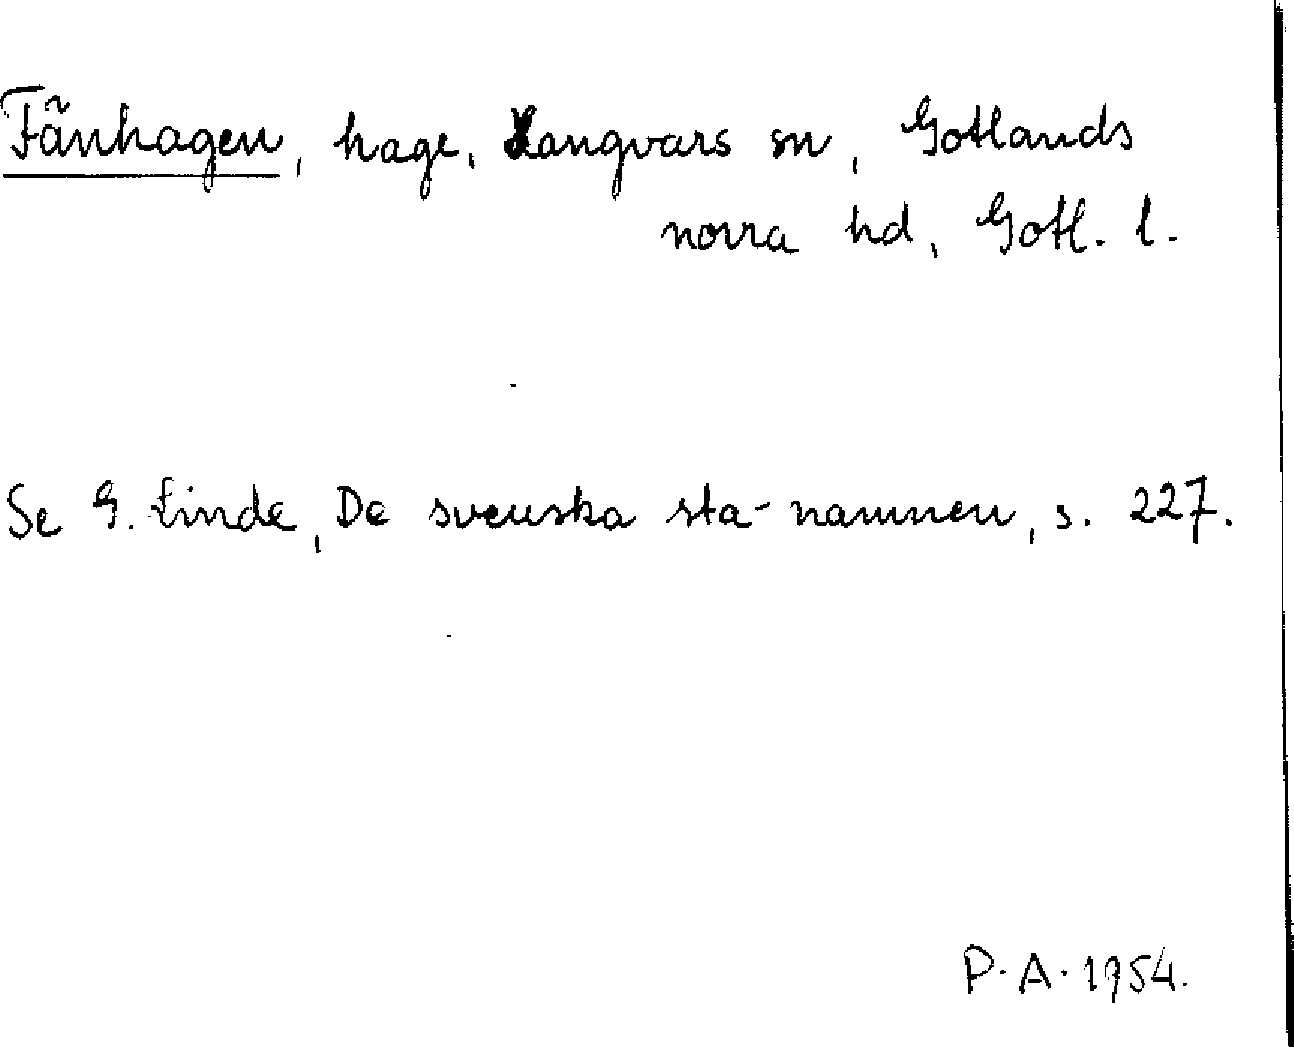 Fånhagen, hage, Hangvars sn, Gotlands
norra hd, Gotl. l.
Se G. Linde, De svenska sta-namnen, s. 227.
P. A. 1954.